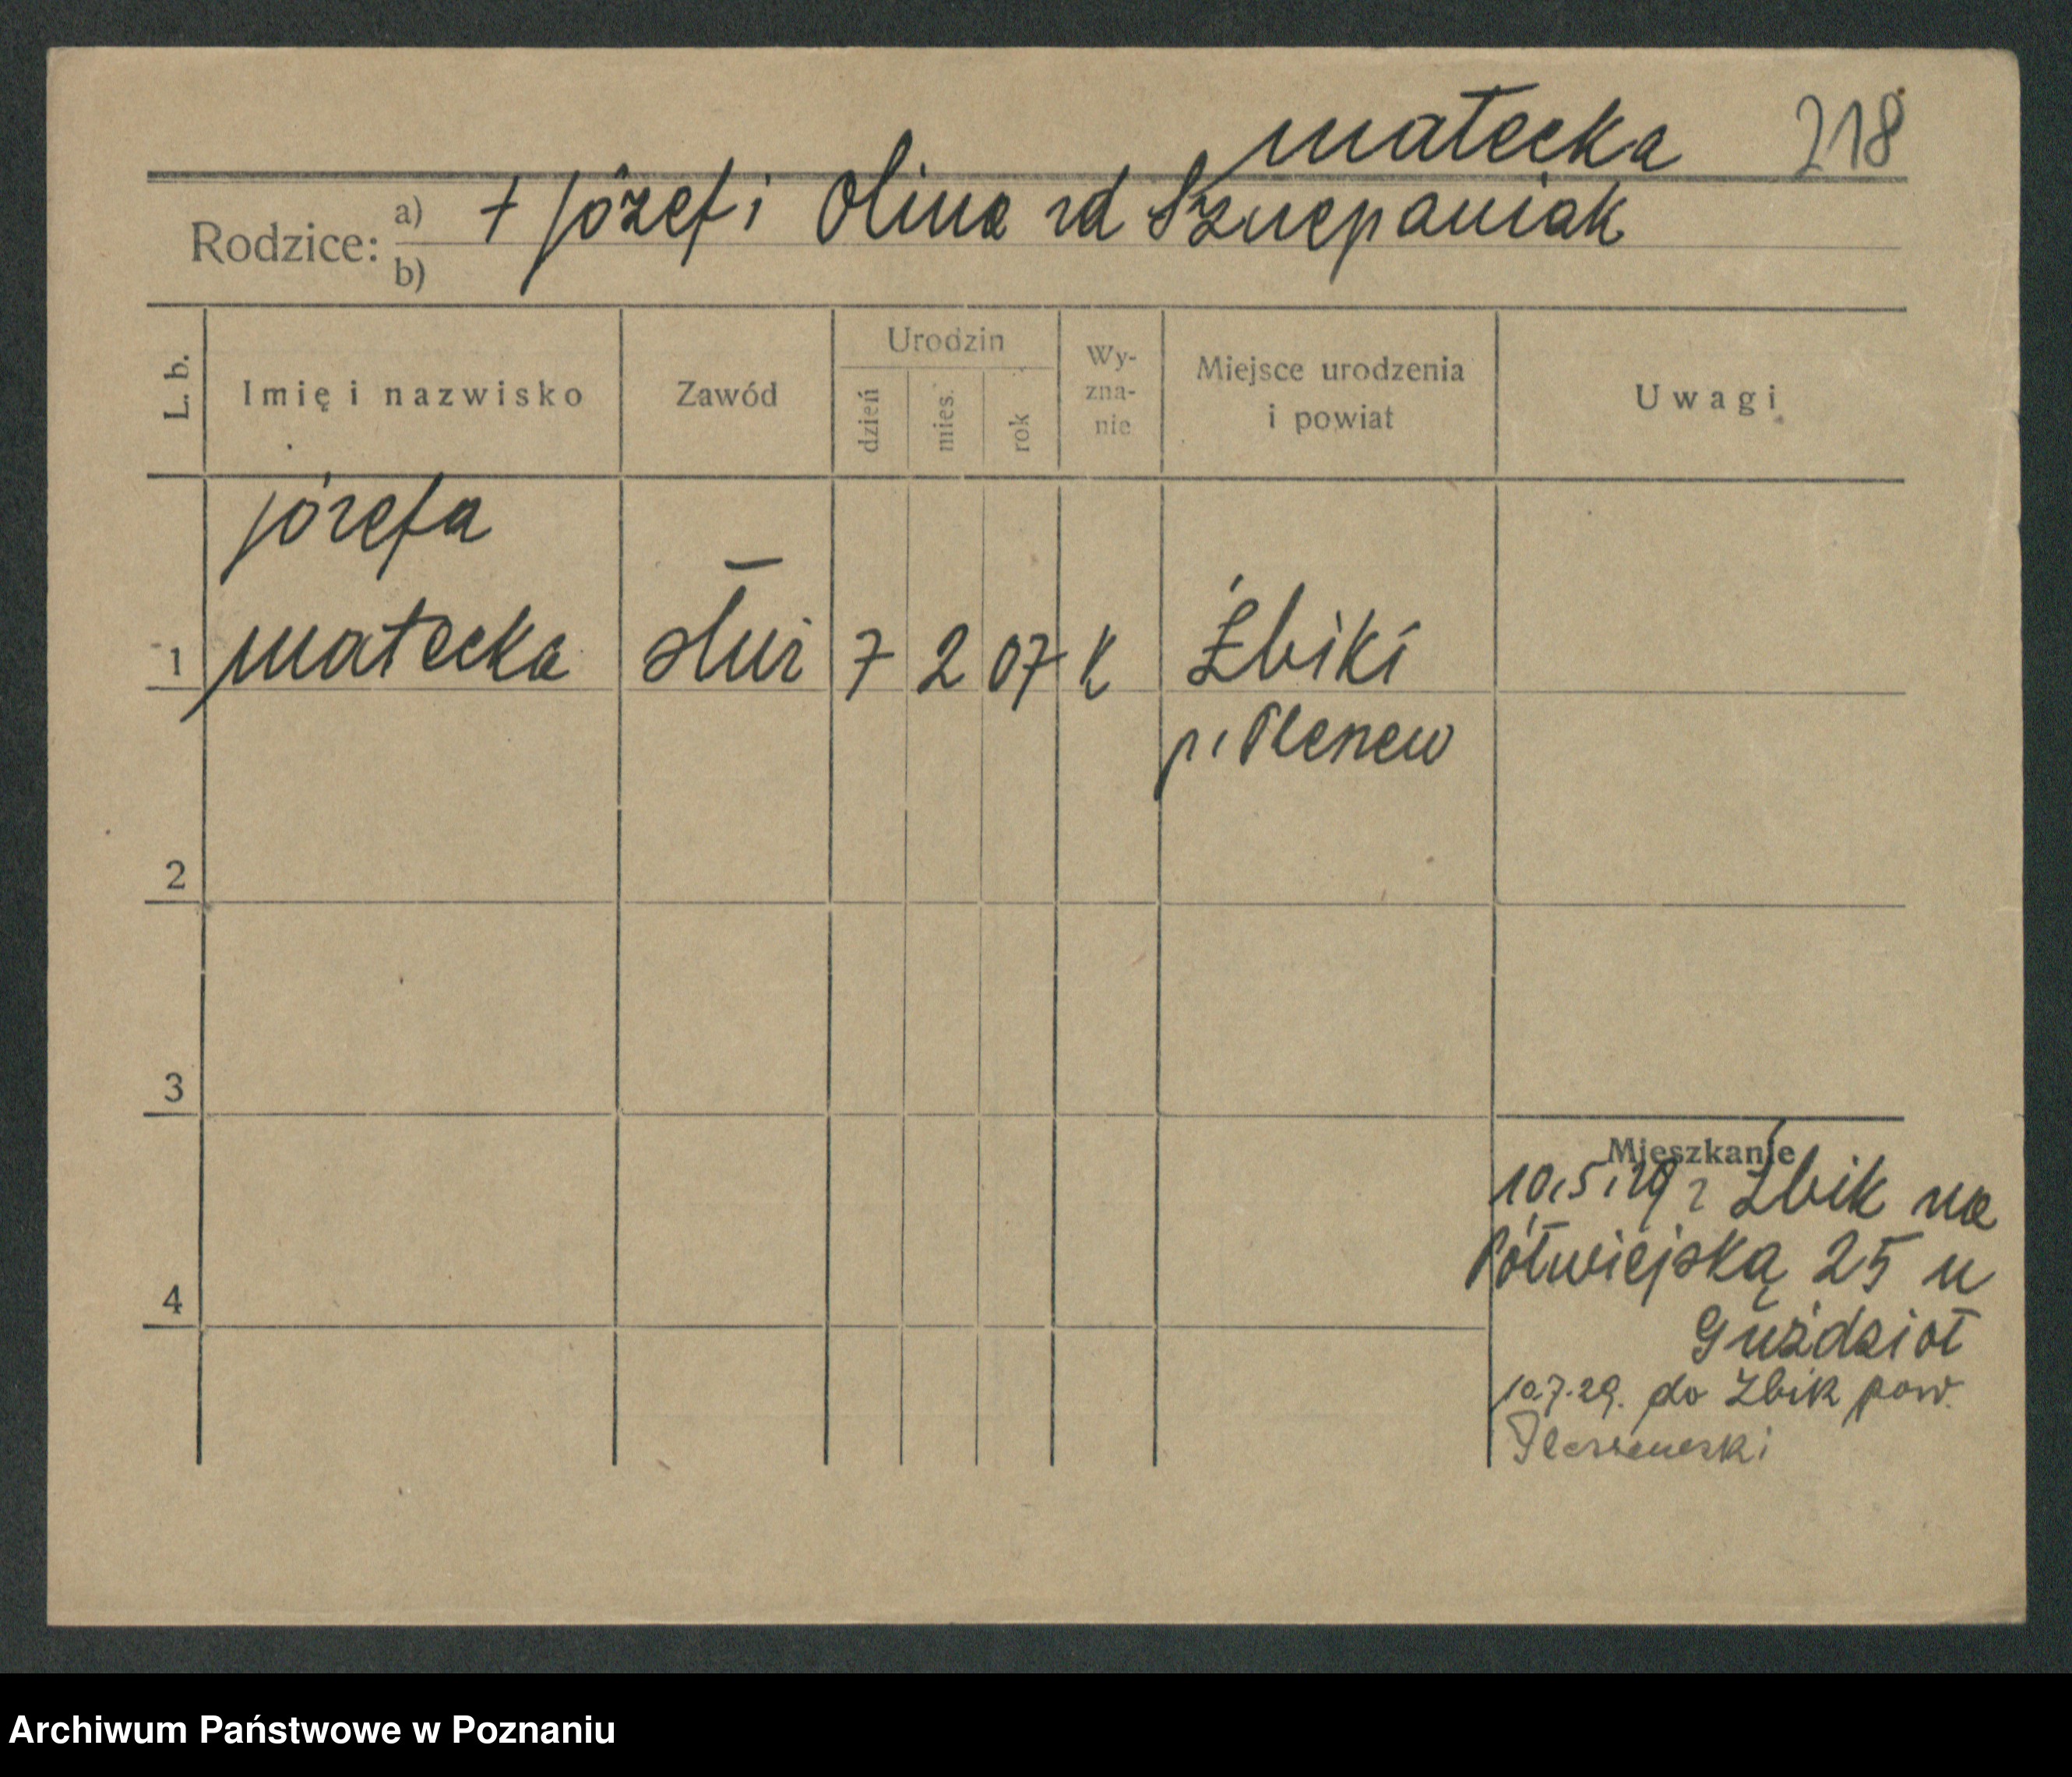 Małecka 218
Rodzice: a) + Józef i Olina rd Szczepaniak
b)
L. b. Imię i nazwisko Zawód Urodzin dzień mies. rok Wy- zna- nie Miejsce urodzenia i powiat Uwagi
Józefa
1 Małecka służ 7 2 07 K Żbiki
p.
2
3
Mieszkanie
10.5.29 z Żbik na
Półwiejską 25 u
4
Guździoł
10.7.29. do Żbik pow.
Pleszewski
Archiwum Państwowe w Poznaniu